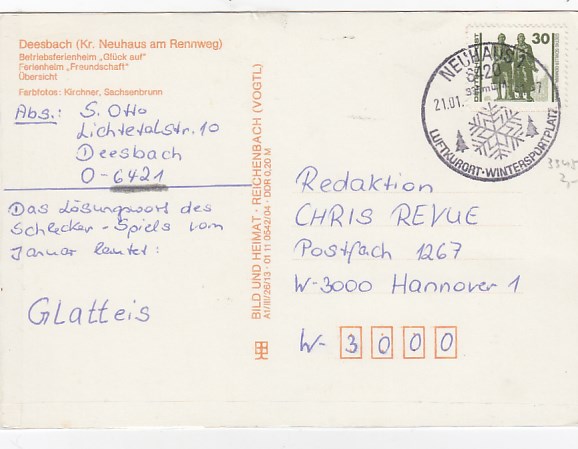 Deesbach (Kr. Neuhaus am Rennweg)
Betriebsferienheim „Glück auf"
Ferienheim „Freundschaft"
Übersicht
Farbfotos: Kirchner, Sachsenbrunn
Abs.: S. Otto
Lichtetalstr. 10
Deesbach
O-6421
Das Lösungswort des
Schlecker-Spiels vom
Januar lautet:
GLatteis
BILD UND HEIMAT · REICHENBACH (VOGTL)
A1/III/26/13 · 01 11 0542/04 · DDR 0,20 M
30
NEUHAUS
6420
21.01.
LUFTKURORT-WINTERSPORTPLATZ
Redaktion
CHRIS REVUE
Postfach 1267
W-3000 Hannover 1
W- 3 0 0 0